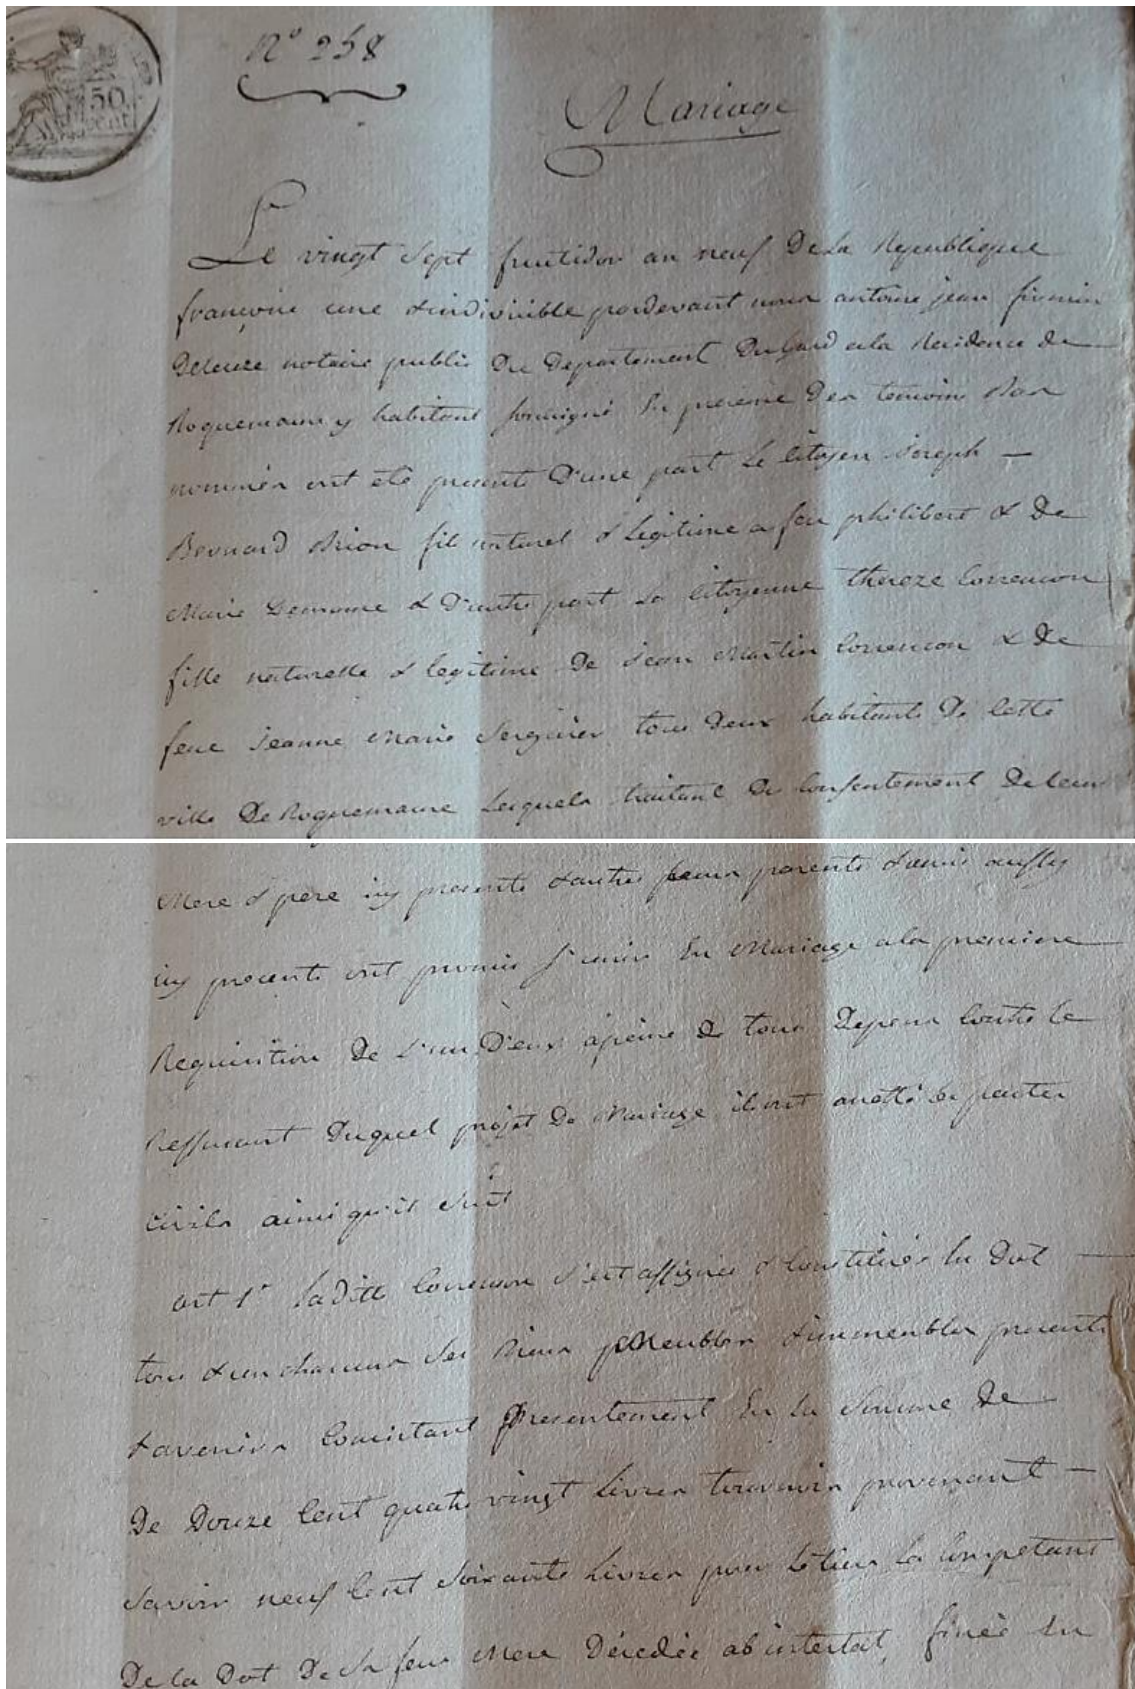 50
cent
N° 258
Mariage
Le vingt sept fructidor an neuf De La Republique
francoise une & indivisible pardevant nous antoine jean firmin
Deleuze notaire public Du Departement Du Gard a la Residence de
Roquemaure y habitant soussigné En presence Des temoins Bas
nommés ont été presents D'une part Le Citoyen Joseph —
Bernard Brion fils naturel & Legitime a feu philibert & De
Marie & D'autre part La Citoyenne thereze Correncon
fille naturelle & legitime De Jean Martin Correncon & De
feue Jeanne Marie tous Deux habitants De Cette
ville De Roquemaure Lesquels traitant Du Consentement De leur
Mere & pere icy presents & autres leurs parents & amis aussy
icy presents ont promis s'unir En Mariage a la premiere
Requisition De L'un D'eux a peine De tous Depens Contre le
Reffusant Duquel projet De Mariage ils ont arretté les pactes
Civils ainsi qu'il suit
art 1er Laditte Correncon s'est assignée & Constituée En Dot —
tous & un chacuns ses Biens Meubles & immeubles presents
& avenirs Consistant presentement En La Somme De
De Douze Cent quatre vingt Livres tournois provenant —
Savoir neuf Cent Soixante Livres pour Le tiers La Competant
De la Dot De Sa feue Mere Décedée ab intestat, fixée En